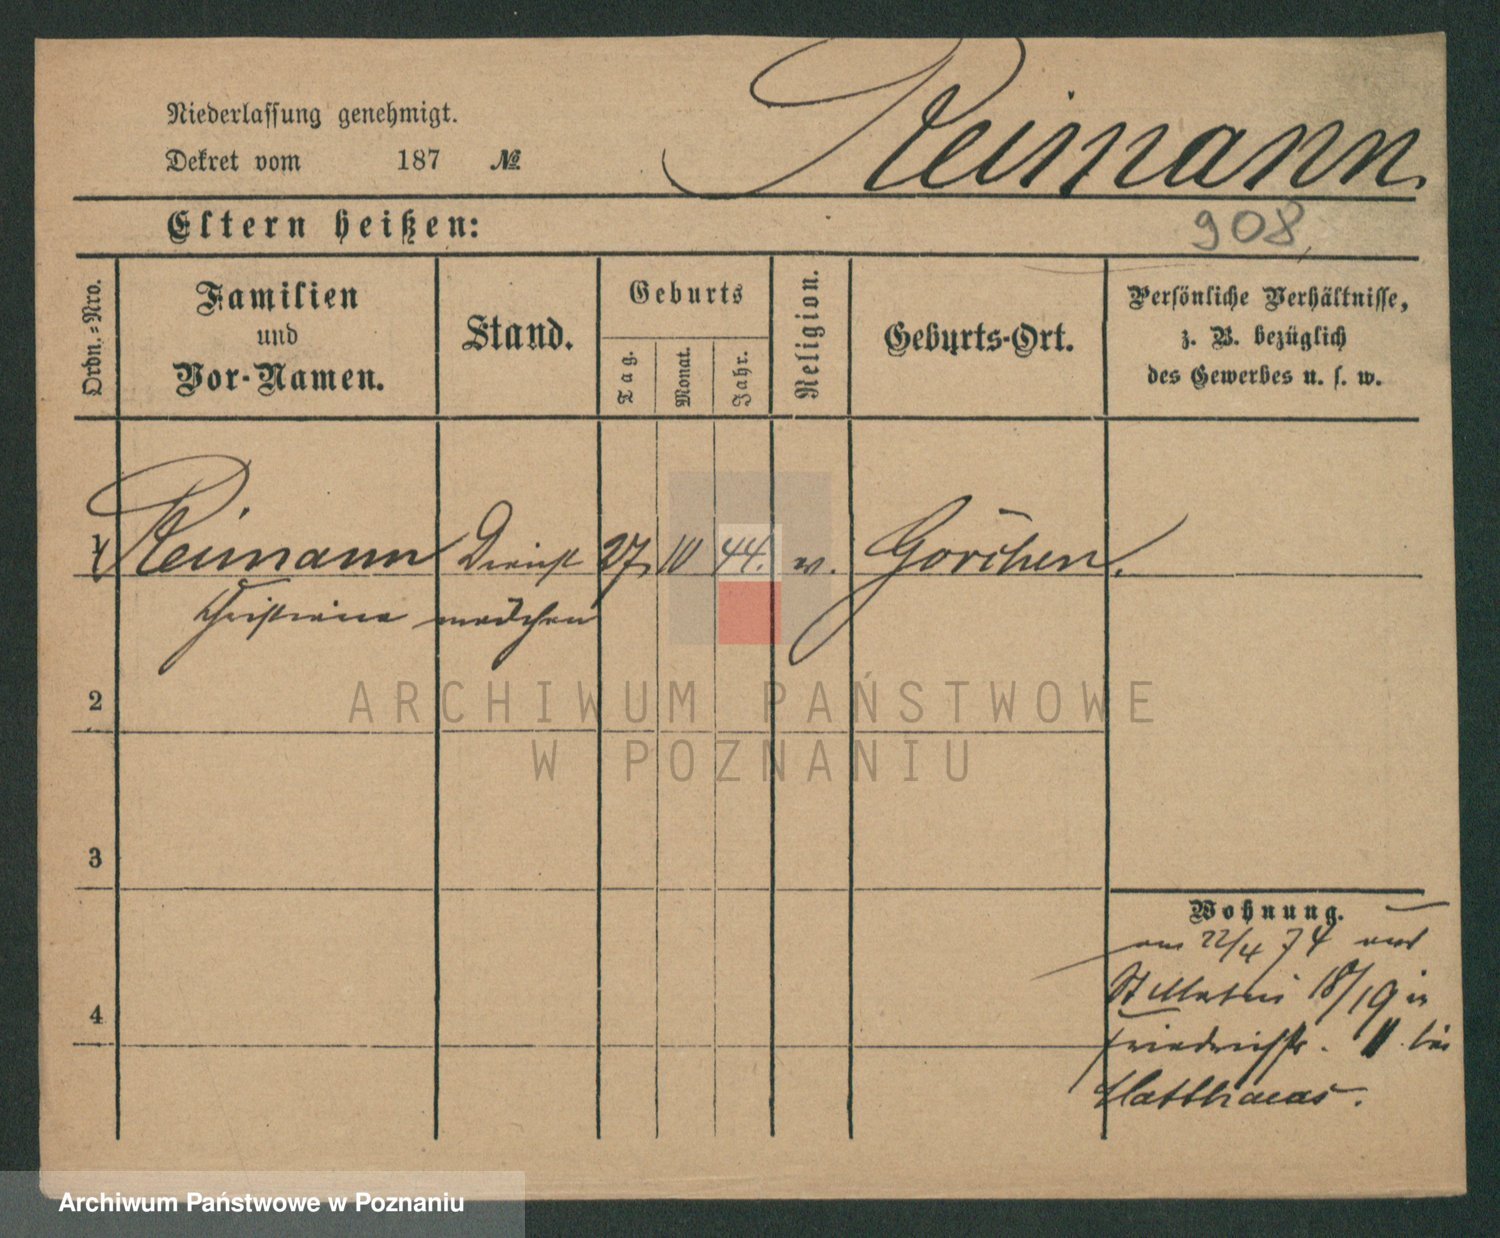 Reimann
Niederlassung genehmigt.
Dekret vom 187 №
Eltern heißen:
908
Ordn.=Nro.
Familien
und
Vor-Namen.
Stand.
Geburts
Tag.
Monat.
Jahr.
Religion.
Geburts-Ort.
Persönliche Verhältnisse,
z. B. bezüglich
des Gewerbes u. s. w.
1 Reimann Dienst 27 10 44. ev. Görchen.
Christiane mädchen
2
3
4
Wohnung.
am 22/4 74 aus
St Martin 18/19 in
Friedrichstr. 11 bei
Matthaeas.
ARCHIWUM PAŃSTWOWE
W POZNANIU
Archiwum Państwowe w Poznaniu